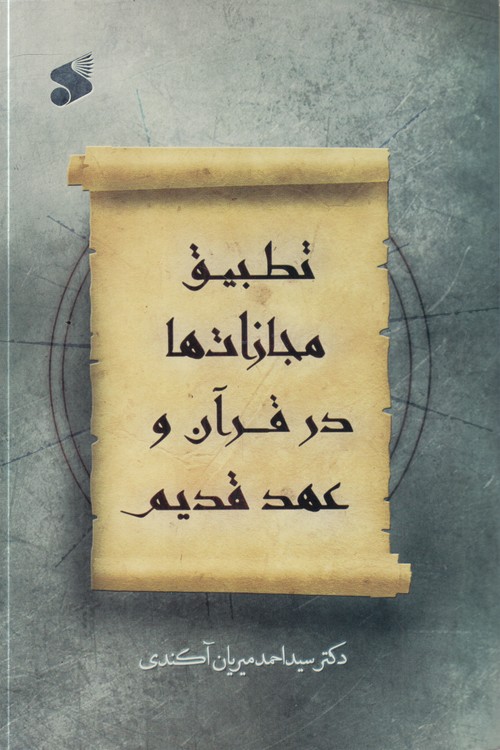 تطبیق
مجازات‌ها
در قرآن و
عهد قدیم
دکتر سید احمد میریان آکندی